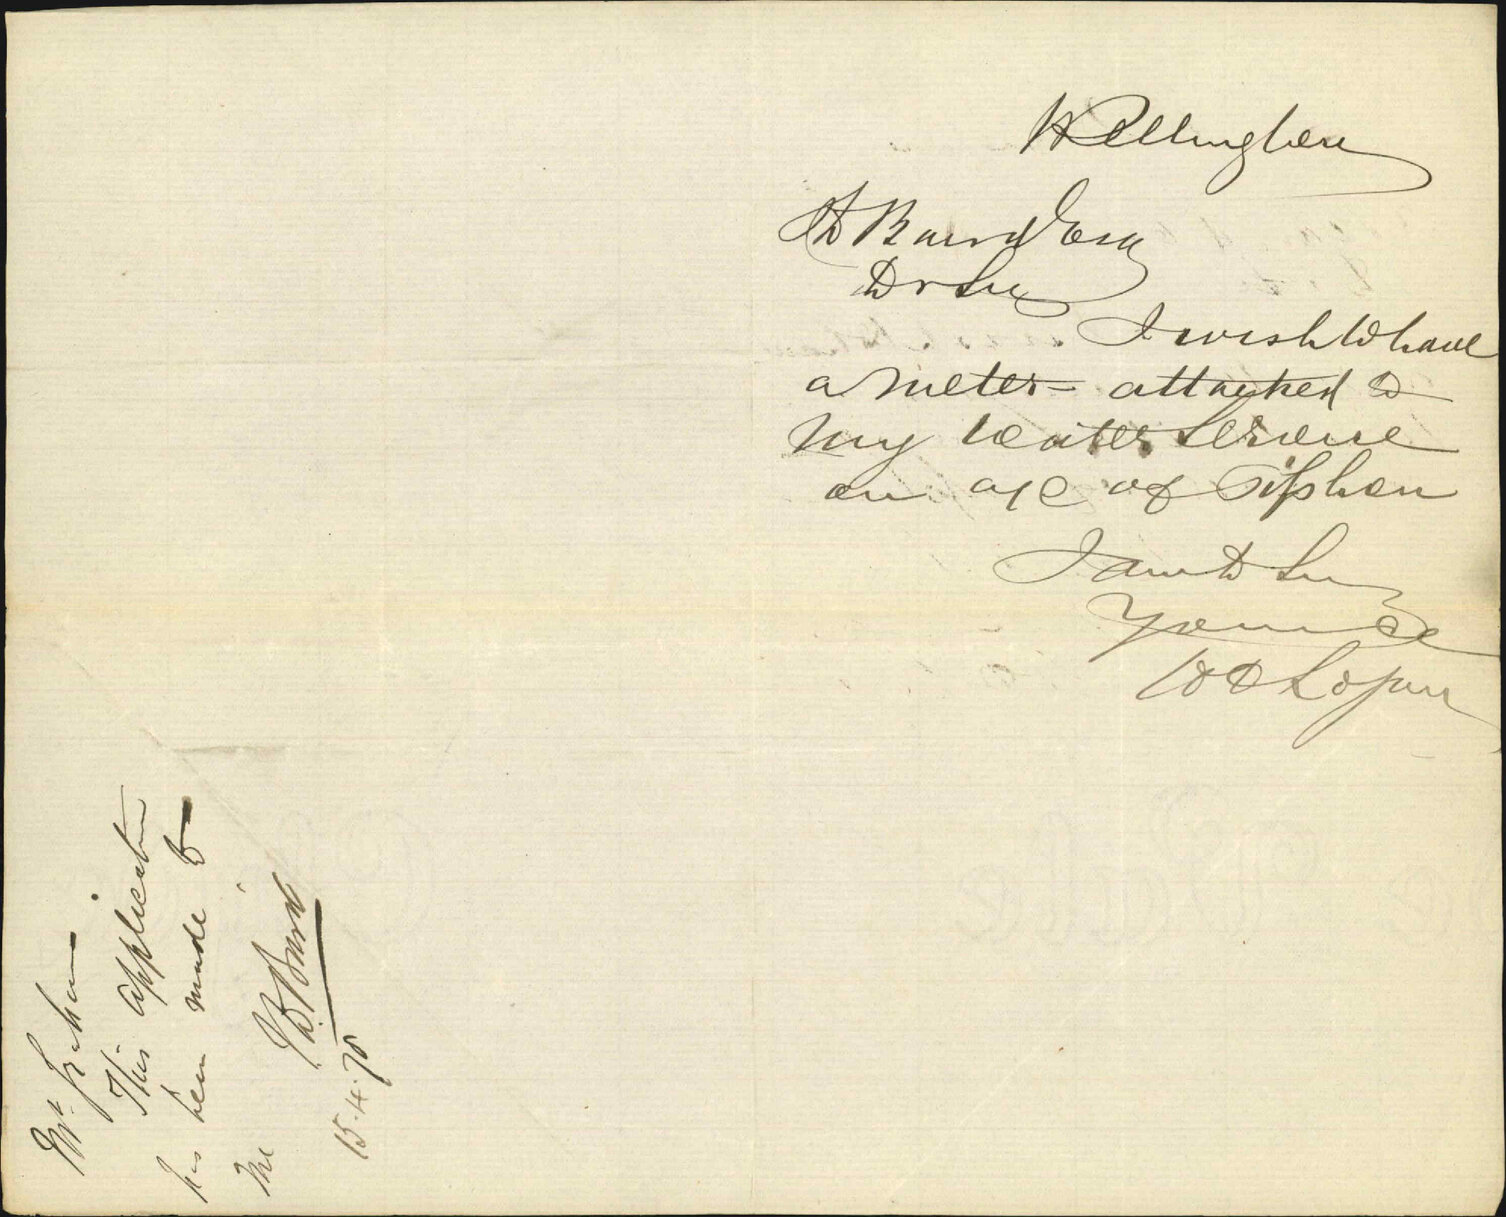 Wellington
J D Baird Esq
Dr Sir
I wish to have
a meter attached to
my water service
on a/c of Siphon
I am D Sir
Yours &c
W D Logan
Mr
This application
has been made to
me
J D Baird
15.4.78